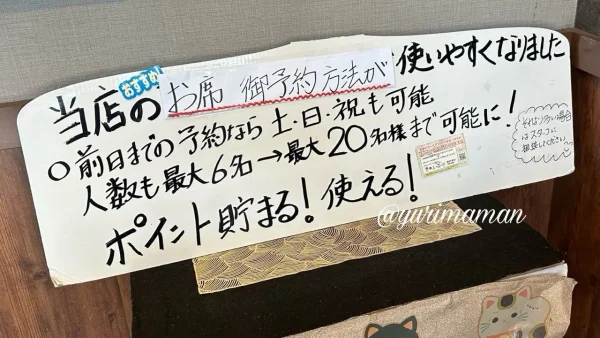 おすすめ
当店のお席 御予約方法が使いやすくなりました
○前日までの予約なら土・日・祝も可能
人数も最大6名→最大20名様まで可能に!
それより多い場合
はスタッフに
相談してください
ポイント貯まる!使える!
@yurimaman